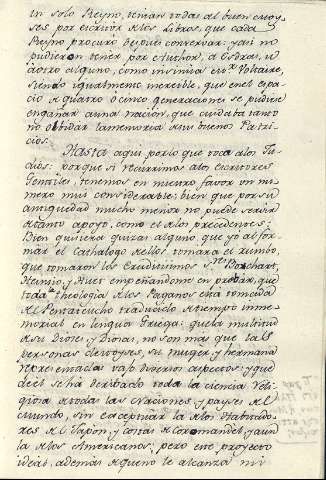 un solo Reyno, tenian todas al buen
ses por escrivir los Libros, que cada
Reyno procurò despues conservar: y asi no
pudieron tener por Author, a Esdras, ú
a otro alguno, como insinúa Voltaire,
siendo igualmente increible, que en el espa-
cio de quatro ò cinco generaciones se pudiese
engañar a una nacion, que cuidaba tanto
no olvidar la memoria de sus buenos Patri-
cios.
Hasta aqui por lo que toca a los Ju-
dios: porque si recurrimos a los escritores
Gentiles, tenemos en nuestro favor un nu-
mero mui considerable; bien que por su
antiguedad mucho menor no puede servir
de tanto apoyo, como el de los precedentes.
Bien quisiera quizas alguno, que yo al for-
mar el cathalogo de ellos tomara el rumbo,
que tomaron los eruditisimos Bochart,
Heinsio, y Huet empeñandome en probar, que
toda la theologia de los Paganos està tomada
del Pentateucho traducido de tiempo inme-
morial en lengua Griega: que la multitud
de sus Dioses, y Diosas, no son mas que las
personas de Moyses, su muger, y hermana
representadas vajo diversos aspectos; y que
de el se ha deribado toda la ciencia reli-
giosa a todas las Naciones, y payses del
mundo, sin exceptuar la de los Habitado-
res del Japon, y costas de Coromandel, y aun
la de los Americanos; pero este proyecto
ideal, ademas de que no le alcanza mi